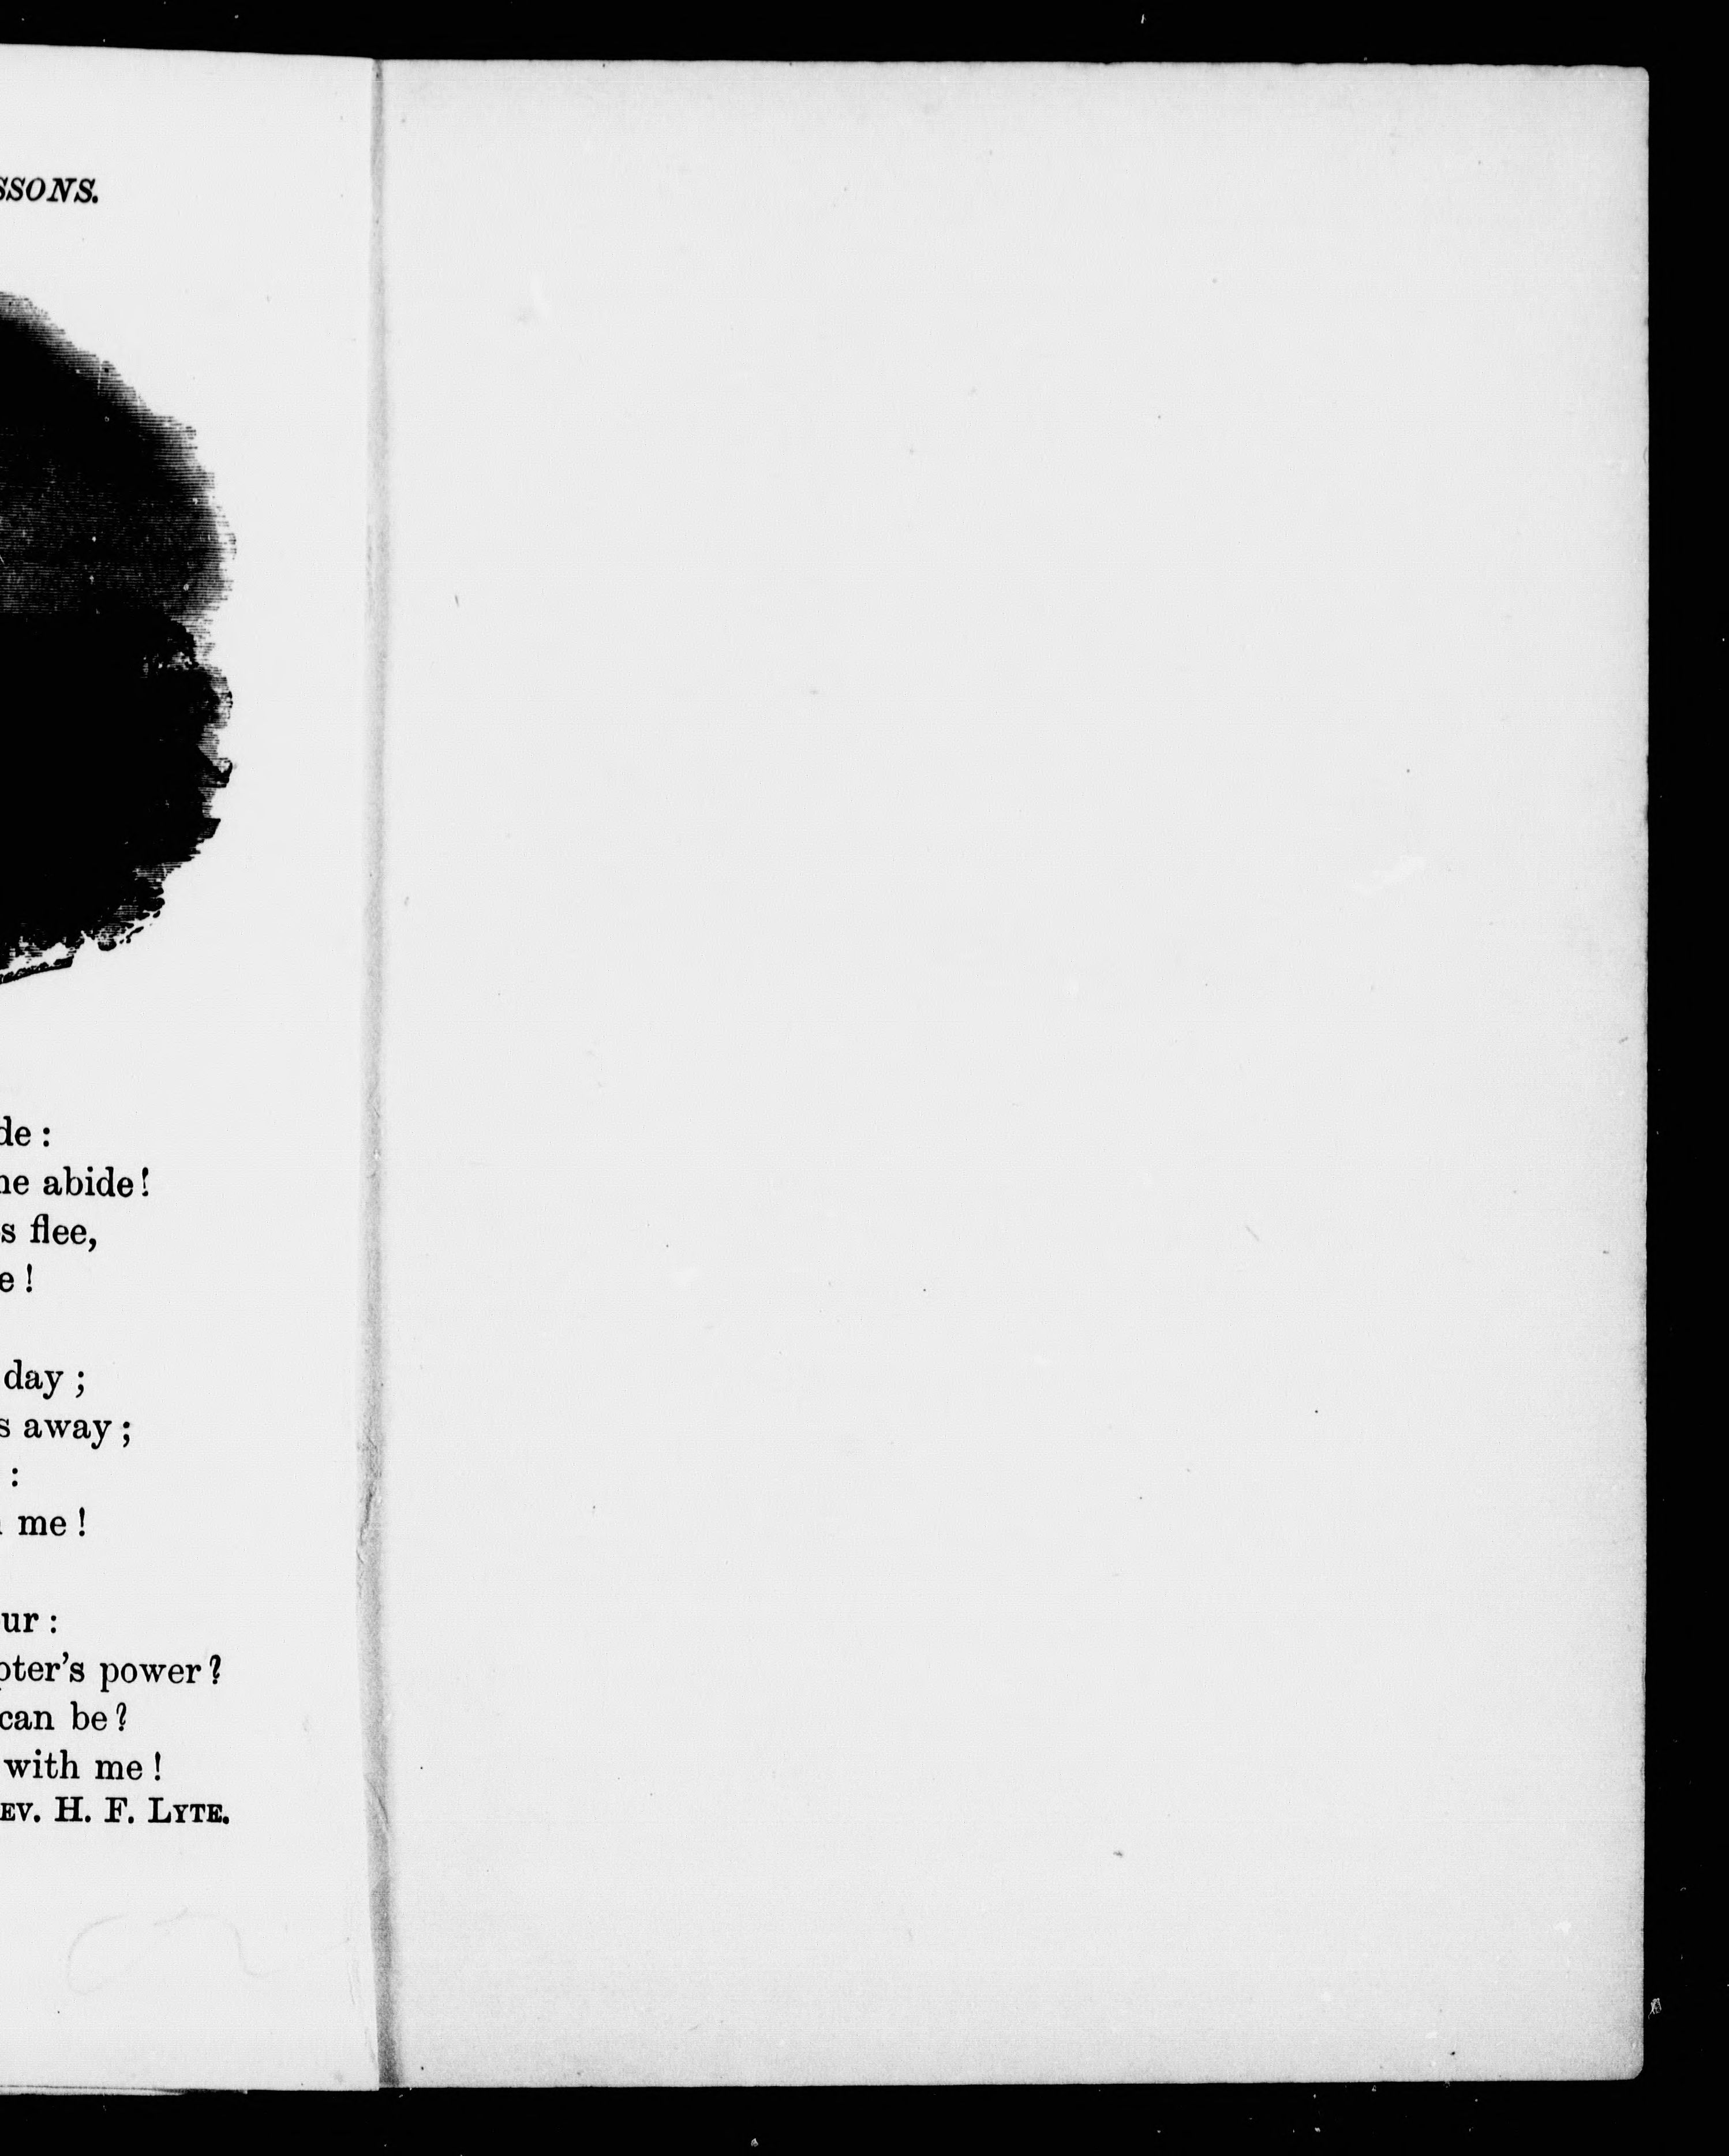 SSONS.
de :
ne abide!
s flee,
e !
day ;
s away ;
:
me !
ur :
pter's power?
can be?
with me !
EV. H. F. LYTE.